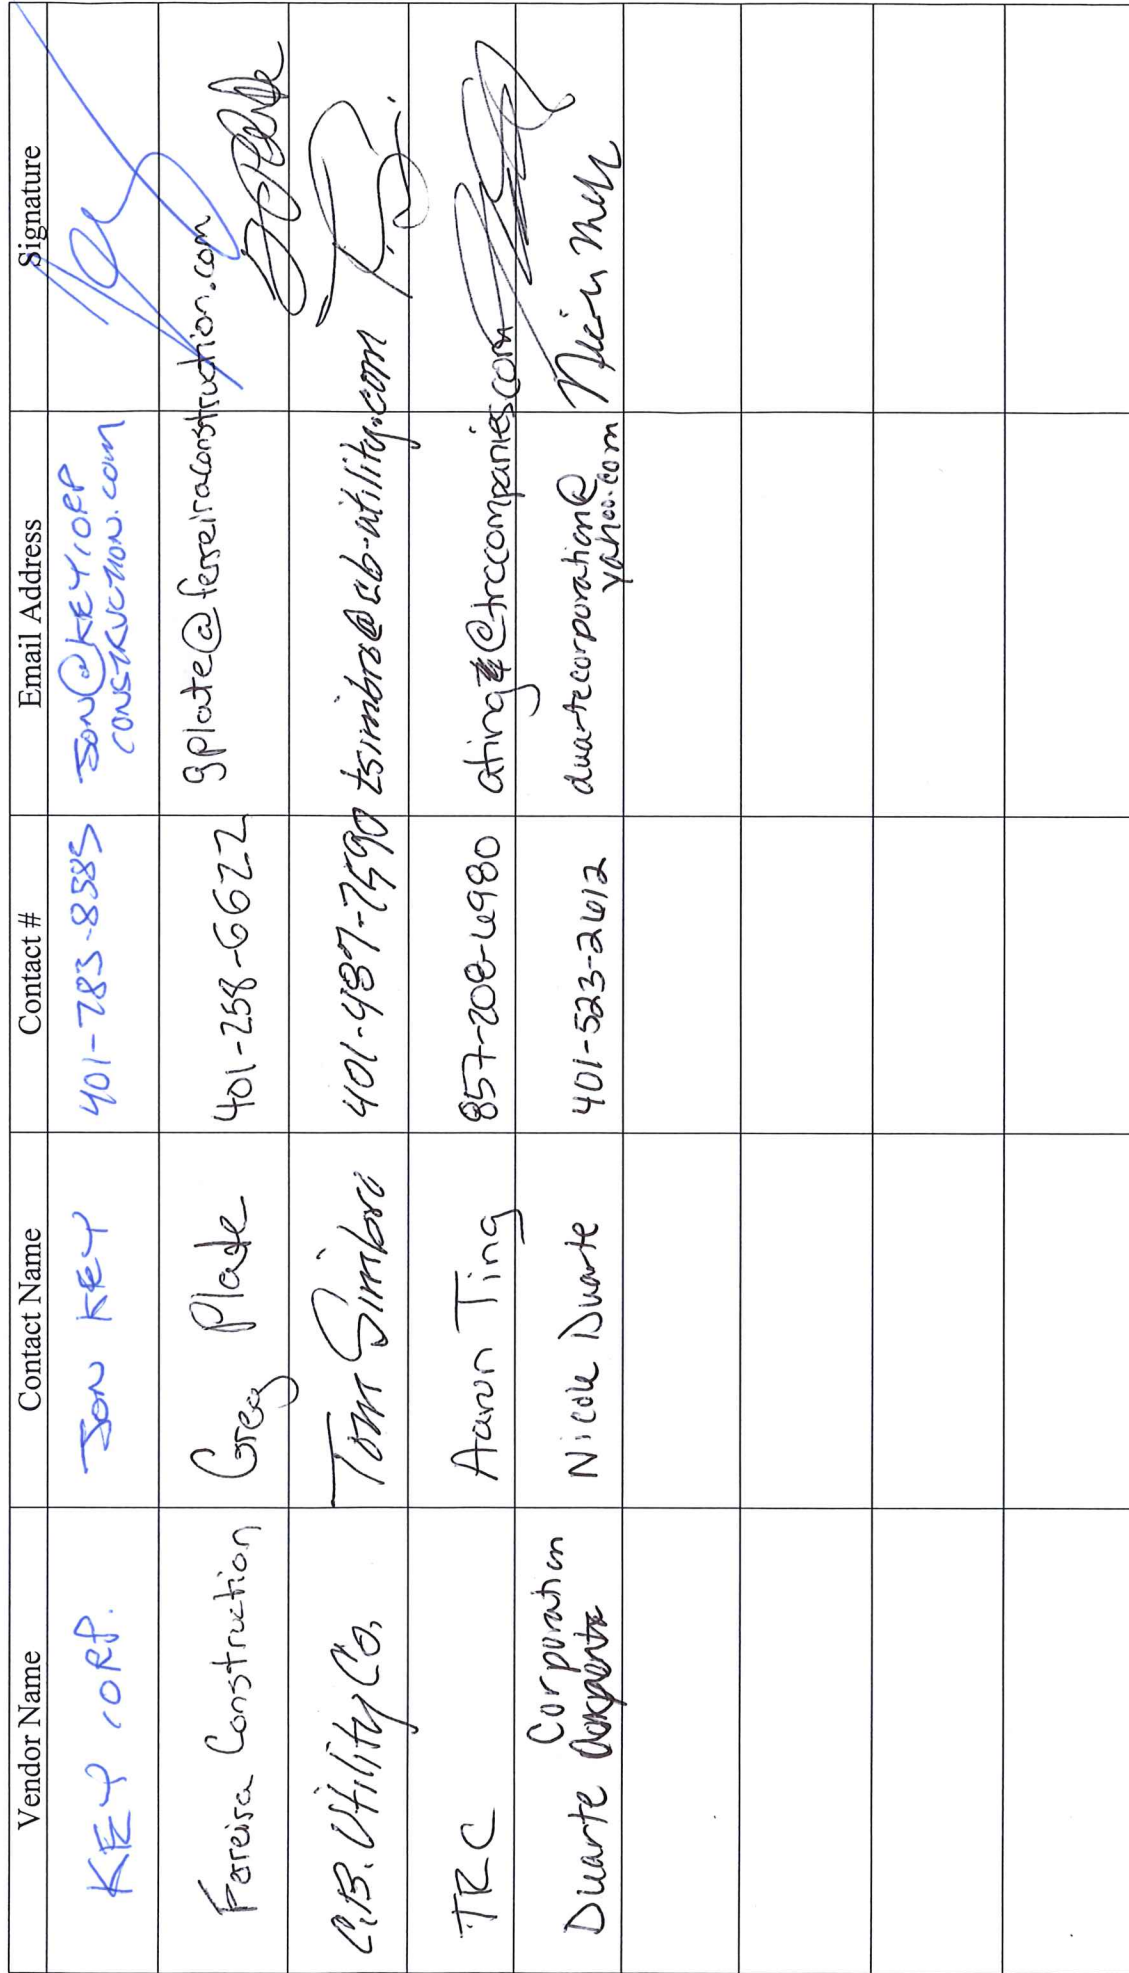 Vendor Name Contact Name Contact # Email Address Signature
KEY CORP. JON KEY 401-783-8385 JON@KEYCORP
CONSTRUCTION.COM
Ferreira Construction Greg Plate 401-258-6622 gplate@ferreiraconstruction.com
C.B. Utility Co. Tom Simbro 401-487-7590 tsimbro@cb-utility.com
TRC Aaron Ting 857-208-6980 ating@trccompanies.com
Corporation
Duarte Nicole Duarte 401-523-2612 duartecorporation@
yahoo.com